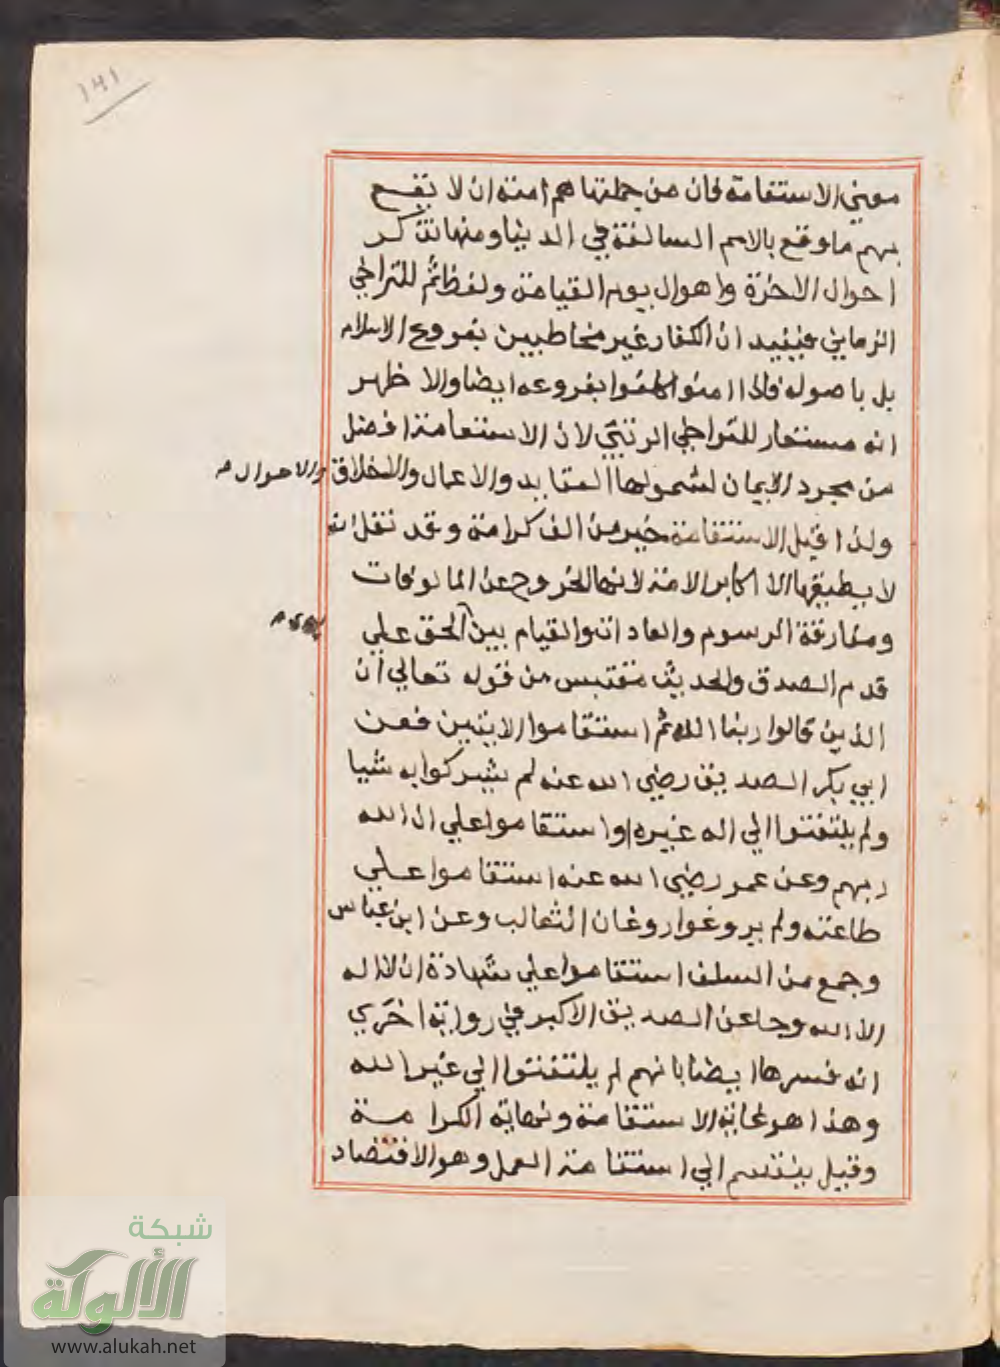 ١٤١
معني الاستقامة فان من جملتها هم امته ان لا يقع
بهم ما وقع بالامم السالفة في الدنيا ومنها تذكر
احوال الاخرة واهوال يوم القيامة ولفظ ثم للتراخي
الزماني فيفيد ان الكفار غير مخاطبين بفروع الاسلام
بل باصوله فاذا امنوا كلفوا بفروعه ايضا والاظهر
انه مستعار للتراخي الرتبي لان الاستقامة افضل
من مجرد الايمان لشمولها العقايد والاعمال والاخلاق
والاحوال
ولذا قيل الاستقامة خير من الف كرامة وقد نقل انه
لا يطيقها الا اكابر الامة لانها الخروج عن المالوفات
ومفارقة الرسوم والعادات والقيام بين الحق علي
قدم الصدق والحديث مقتبس من قوله تعالي ان
الذين قالوا ربنا الله ثم استقاموا الايتين فعن
ابي بكر الصديق رضي الله عنه لم يشركوا به شيا
ولم يلتفتوا الي اله غيره واستقاموا علي ان الله
ربهم وعن عمر رضي الله عنه استقاموا علي
طاعته ولم يروغوا روغان الثعالب وعن ابن عباس
وجمع من السلف استقاموا علي شهادة ان لا اله
الا الله وجا عن الصديق الاكبر في رواية اخري
انه فسرها ايضا بانهم لم يلتفتوا الي غير الله
وهذا هو غاية الاستقامة ونهاية الكرامة
وقيل ينقسم الي استقامة العمل وهو الاقتصاد
شبكة
الألوكة
www.alukah.net